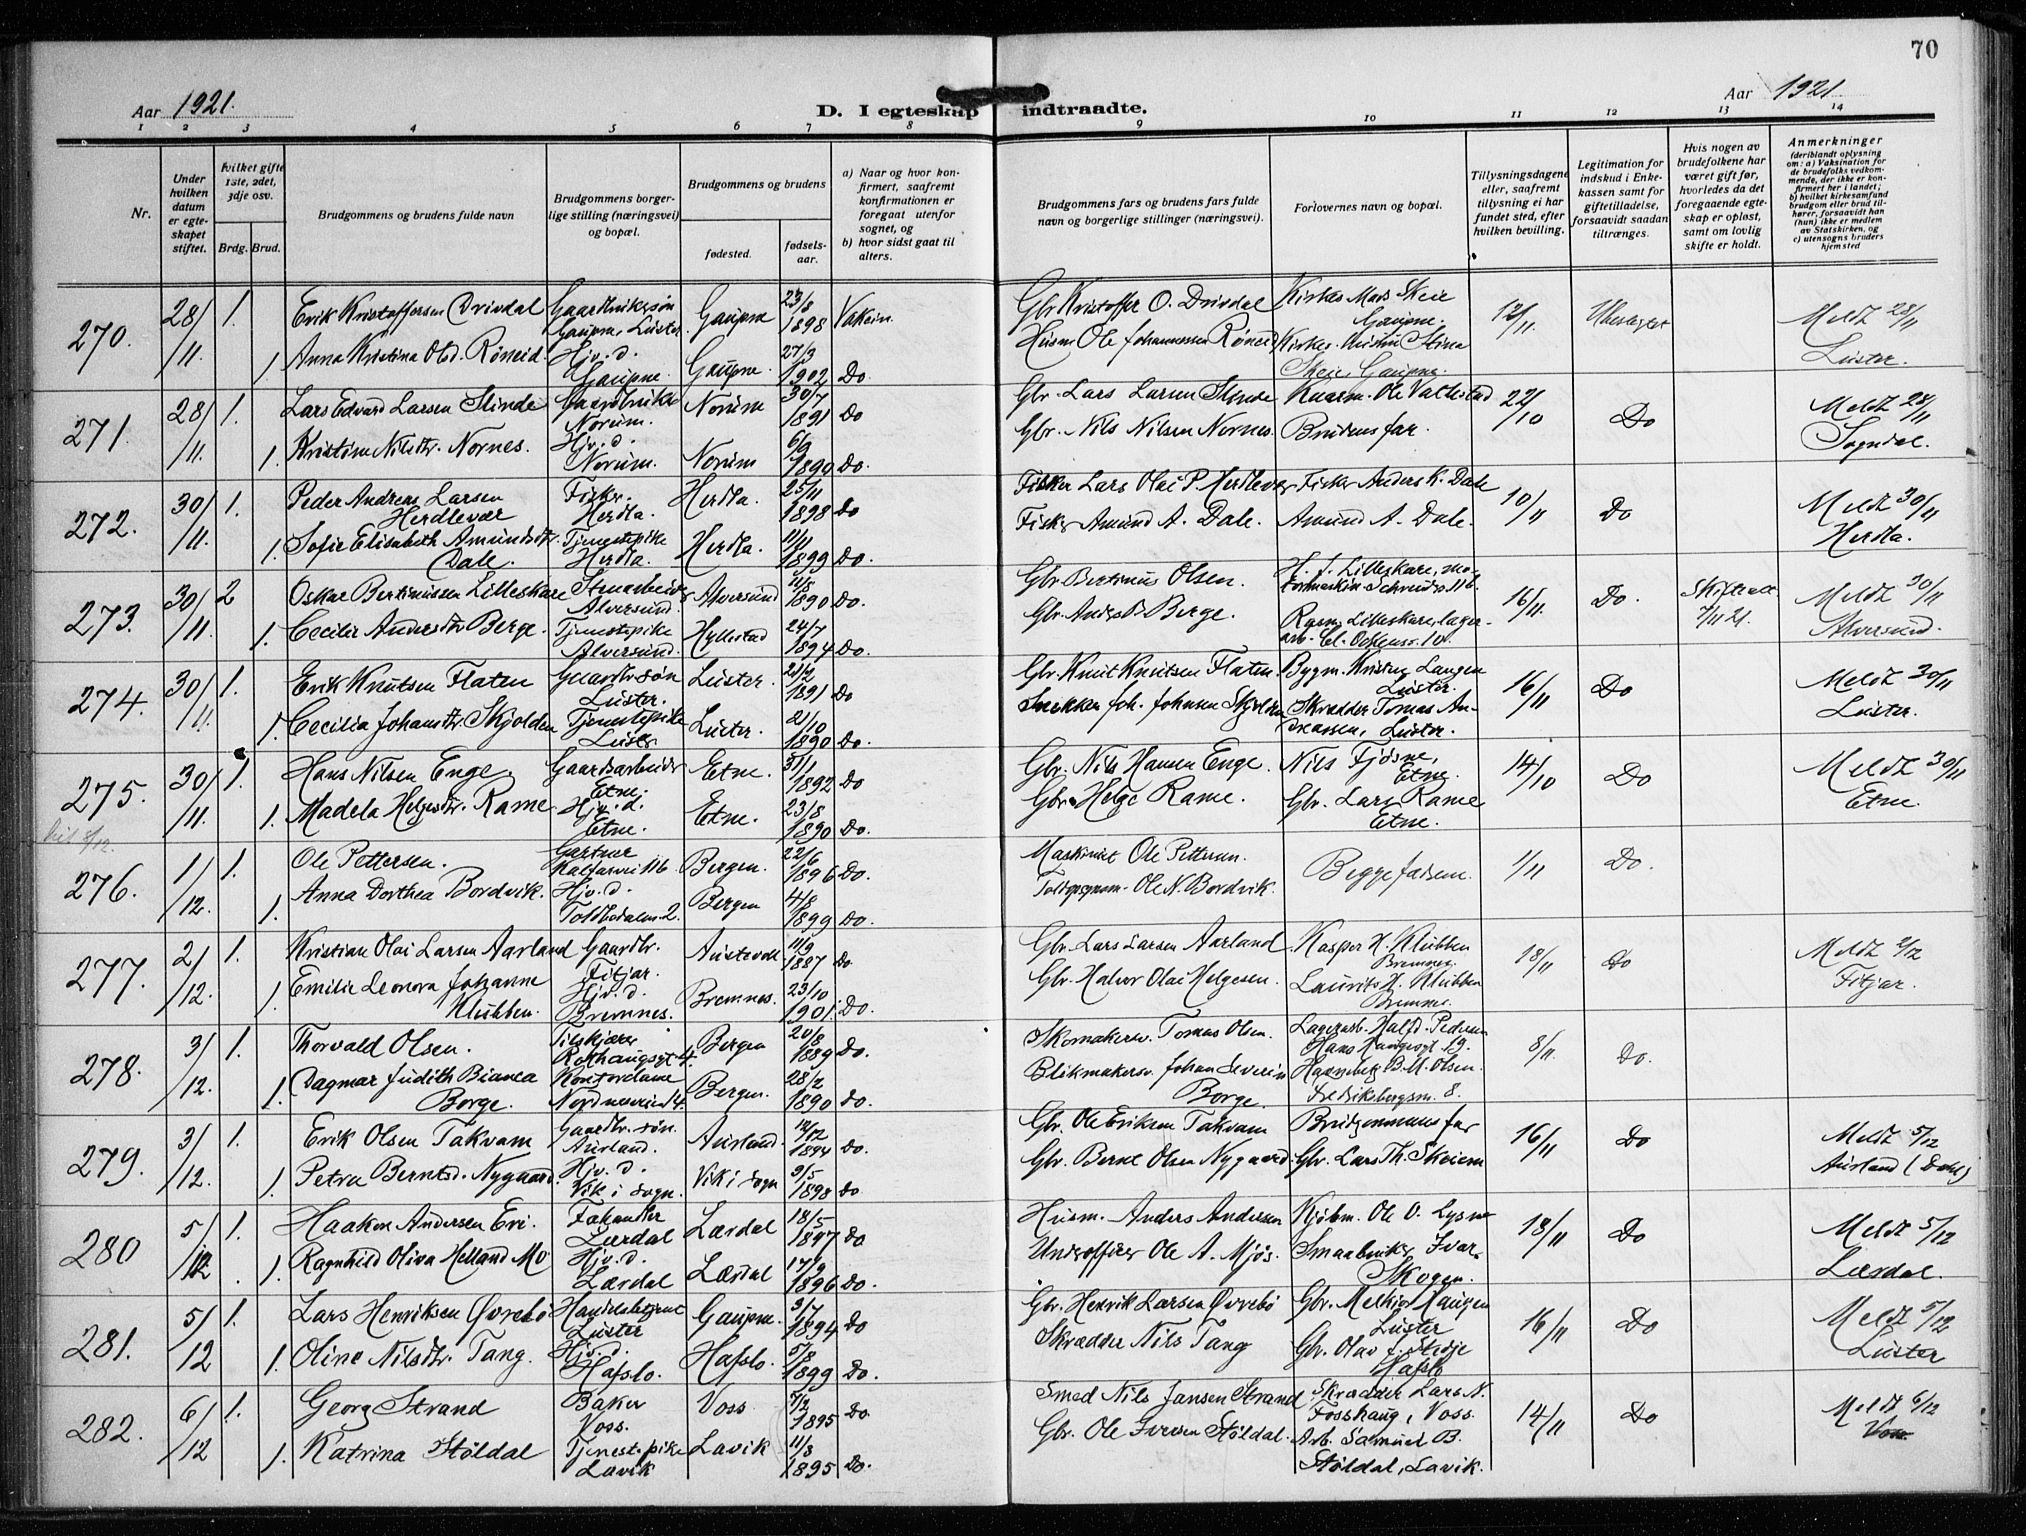 70
Aar 1921.
D. I egteskap indtraadte.
Aar 1921.
1 2 3 4 5 6 7 8 9 10 11 12 13 14
Nr.
Under hvilken datum er egteskapet stiftet.
hvilket gifte 1ste, 2det, 3dje osv.
Brdg. Brud.
Brudgommens og brudens fulde navn
Brudgommens borgerlige stilling (næringsvei) og bopæl.
Brudgommens og brudens
fødested.
fødselsaar.
a) Naar og hvor konfirmert, saafremt konfirmationen er foregaat utenfor sognet, og
b) hvor sidst gaat til alters.
Brudgommens fars og brudens fars fulde navn og borgerlige stillinger (næringsvei).
Forlovernes navn og bopæl.
Tillysningsdagene eller, saafremt tillysning ei har fundet sted, efter hvilken bevilling.
Legitimation for indskud i Enkekassen samt for giftetilladelse, forsaavidt saadan tiltrænges.
Hvis nogen av brudefolkene har været gift før, hvorledes da det foregaaende egteskap er opløst, samt om lovlig skifte er holdt.
Anmerkninger
(deriblandt oplysning om: a) Vaksination for de brudefolks vedkommende, der ikke er konfirmert her i landet; b) hvilket kirkesamfund brudgom eller brud tilhører, forsaavidt han (hun) ikke er medlem av Statskirken, og c) utensogns bruders hjemsted
270. 28/11. 1. Erik Kristoffersen Drivdal Gaardbrukersøn Gaupne, Luster. Gaupne 23/8 1898 Gbr Kristoffer O. Drivdal Kirkes. Mads Skeie Gaupne. 12/11. Meldt 28/11 Luster.
1. Anna Kristina Olsd. Røneid. Hjv. d. Gaupne. Gaupne. 27/3 1902 Do. Husm Ole Johannessen Røneid Skeie, Gaupne.
271. 28/11. 1. Lars Edvard Larsen Slinde Gaardbruker Norum. Norum 30/7 1891 Do Gbr. Lars Larsen Slinde Ole Vallestad 22/10 Do Meldt 28/11 Sogndal.
1. Kristine Nilsdtr. Nornes. Hjv. d. Norum. Norum 6/9 1890 Do. Gbr. Nils Nilsen Nornes. Brudens far.
272. 30/11. 1. Peder Andreas Larsen Herdlevær Fisker. Herdla. Herdla. 25/11 1898 Do Fisker Lars Olai P. Herdlevær Fisker Anders K. Dale 10/11 Do Meldt 30/11 Herdla.
1. Sofie Elisabeth Amundsdtr. Dale. Tjenestepike Herdla. Herdla. 11/1 1899 Do. Fisker Amund A. Dale. Amund A. Dale.
273. 30/11. 2 Oskar Bertinussen Lilleskare Alversund. Alversund 11/5 1890 Do. Gbr Bertinus Olsen. H. J. Lilleskare, 16/11. Do. Skifteatt. 7/11 21. Meldt 30/11 Alversund.
1. Cecilie Andersdtr Berge. Tjenestepike Alversund. Hyllestad 24/7 1894 Do. Gbr. Anders B. Berge. Rasm. Lilleskare, lagerarb.
274. 30/11. 1. Erik Knutsen Flaten Gaardbr.søn Luster. Luster. 21/2 1891 Do Gbr. Knut Knutsen Flaten Bygm. Kristen Laugen Luster. 16/11 Do Meldt 30/11 Luster.
1. Cecilia Johansdtr. Skjolden Tjenestepike Luster Luster. 21/10 1890 Do. Snekker Joh. Johnsen Skjolden Skrædder Tomas Andreassen, Luster.
275. 30/11. 1. Hans Nilsen Enge. Gaardsarbeider Etne. Etne. 31/1 1892 Do Gbr. Nils Hansen Enge. Nils Fjøsne, Etne. 14/10 Do Meldt 30/11 Etne.
1. Madela Helgesdtr. Rame Hjv. d. Etne. Etne. 23/8 1890 Do. Gbr. Helge Rame. Gbr. Lars Rame Etne.
276. 1/12. 1. Ole Pettersen. Gartner Kalfarvei 116 Bergen. 22/6 1896 Do. Maskinist Ole Pettersen. Begge fædrene. 1/11 Do.
1. Anna Dorthea Bordvik. Hjv. d. Toldbodalm. 2. Bergen 4/8 1899 Do. Ole N. Bordvik.
277. 2/12. 1. Kristian Olai Larsen Aarland Gaardbr. Fitjar. Austevoll 11/9 1887 Do. Gbr. Lars Larsen Aarland Kasper H. Klubben Bremnes. 18/11 Do Meldt 2/12 Fitjar.
1. Emilie Leonora Johanne Klubben. Hjv. d. Bremnes. Bremnes. 23/10 1901. Do. Gbr. Halvor Olai Helgesen. Laurits H. Klubben Bremnes.
278. 3/12. 1. Thorvald Olsen. Tilskjærer Rothaugsgt 4. Bergen 20/8 1889 Do. Skomakerm. Tomas Olsen. Lagerarb. Halfd. Pedersen Hans Haugesgt 19. 8/11. Do.
1. Dagmar Judith Bianca Borge. Kontordame Nordnesveien 4. Bergen. 28/2 1890 Do. Blikmakersv. Johan Severin Borge B. M. Olsen. Fredriksbergsm. 8.
279. 3/12. 1. Erik Olsen Takvam Gaardbr. søn. Aurland. Aurland. 12/12 1894 Do. Gbr. Ole Eriksen Takvam Brudgommens far 16/11 Do Meldt 5/12 Aurland (Dahl)
1. Petra Berntsd. Nygaard. Hjv. d. Vik i Sogn. Vik i Sogn 9/5 1898 Do. Gbr. Bernt Olsen Nygaard. Gbr. Lars Th. Skeiem
280 5/12 1. Haakon Andersen Eri. Lærdal Lærdal 18/5 1897 Do. Husm. Anders Andersen Kjøbm. Ole O. Lysne 18/11 Do Meldt 5/12 Lærdal.
1. Ragnhild Oliva Helland Mo Hjv. d. Lærdal Lærdal 17/9 1896 Do. Underofficer Ole A. Mjøs. Smaabruker Ivar Skogen.
281. 5/12 1. Lars Henriksen Øvrebø Handelsbetjent Luster Gaupne. 3/7 1894 Do Gbr. Henrik Larsen Øvrebø Gbr. Melkior Haugen Luster 16/11 Do Meldt 5/12 Luster
1. Oline Nilsdtr. Tang. Hjv. d. Hafslo. Hafslo. 5/8 1899 Do. Skrædder Nils Tang Gbr. Olav J. Stedje Hafslo
282. 6/12 1. Georg Strand Baker Voss. Voss 5/2 1895 Do. Smed Nils Jansen Strand Skrædder Lars N. Fosshaug, Voss. 14/11 Do Meldt 6/12 Voss.
1. Katrina Støldal Tjenestepike Lavik Lavik 11/3 1895 Do. Gbr. Ole Iversen Støldal. Arb. Samuel B. Støldal, Lavik.